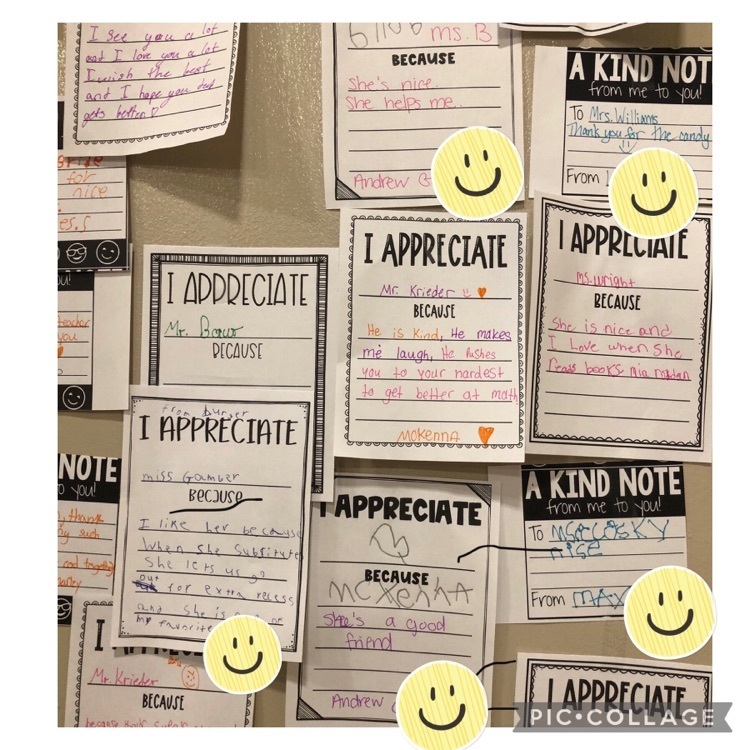 I see you a lot
and I love you a lot
I wish the best
and I hope your dad
gets better
ms. B
BECAUSE
She's nice.
She helps me.
Andrew
A KIND NOT
from me to you!
To Mrs. Williams
Thank you for the candy
From
for
nice
I APPRECIATE
Mr. Krieder
BECAUSE
He is Kind, He makes
me laugh, He Pushes
you to your hardest
to get better at math
McKenna
I APPRECIATE
Ms. Wright
BECAUSE
She is nice and
I Love when She
reads books
I APPRECIATE
Mr. Bravo
BECAUSE
you!
you
from burger
I APPRECIATE
miss Gambur
BECAUSE
I like her because
When she Substitutes
She lets us go
out for extra recess
and She is
my favorite
NOTE
to you!
thank
such
I APPRECIATE
BECAUSE
MCKENNA
She's a good
friend
Andrew
A KIND NOTE
from me to you!
To
nise
From MAX
Mr. Krieder
BECAUSE
I APPRECIATE
PIC•COLLAGE